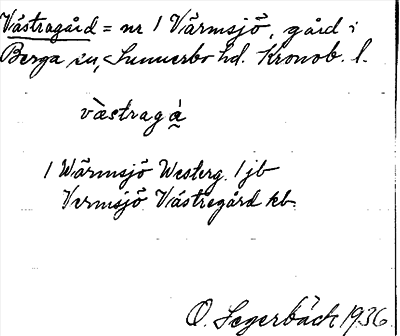 Västragård = nr 1 Värmsjö, gård i
Berga sn, Sunnerbo hd. Kronob. l.
væ̀stragå̱
1 Wärmsjö Westerg. 1 jb
Vermsjö Västregård kb.
O. Segerbäck 1936